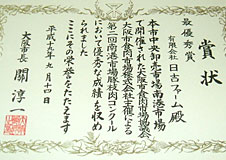 賞状
最優秀賞
有限会社 日古ファーム殿
本市中央卸売市場南港市場
で開催された大阪市食肉市場協議会
大阪市食肉市場株式会社主催による
第二回南港市場豚枝肉コンクール
において優秀な成績を収め
られました
ここにその栄誉をたたえます
平成十五年九月十四日
大阪市長 關 淳一